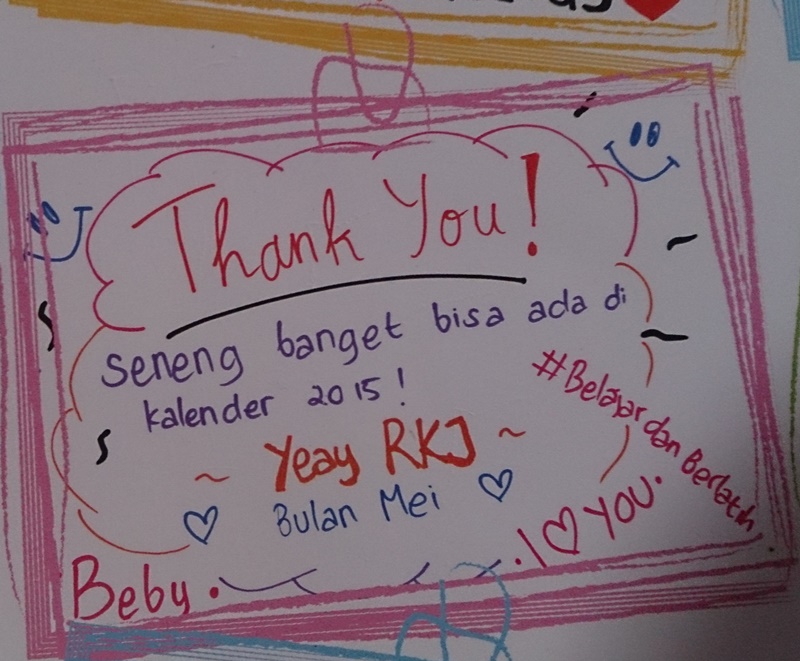 Thank You!
seneng banget bisa ada di
kalender 2015!
~ Yeay RKJ ~
♡ Bulan Mei ♡
#Belajar dan Berlatih
Beby.
I ♡ YOU.